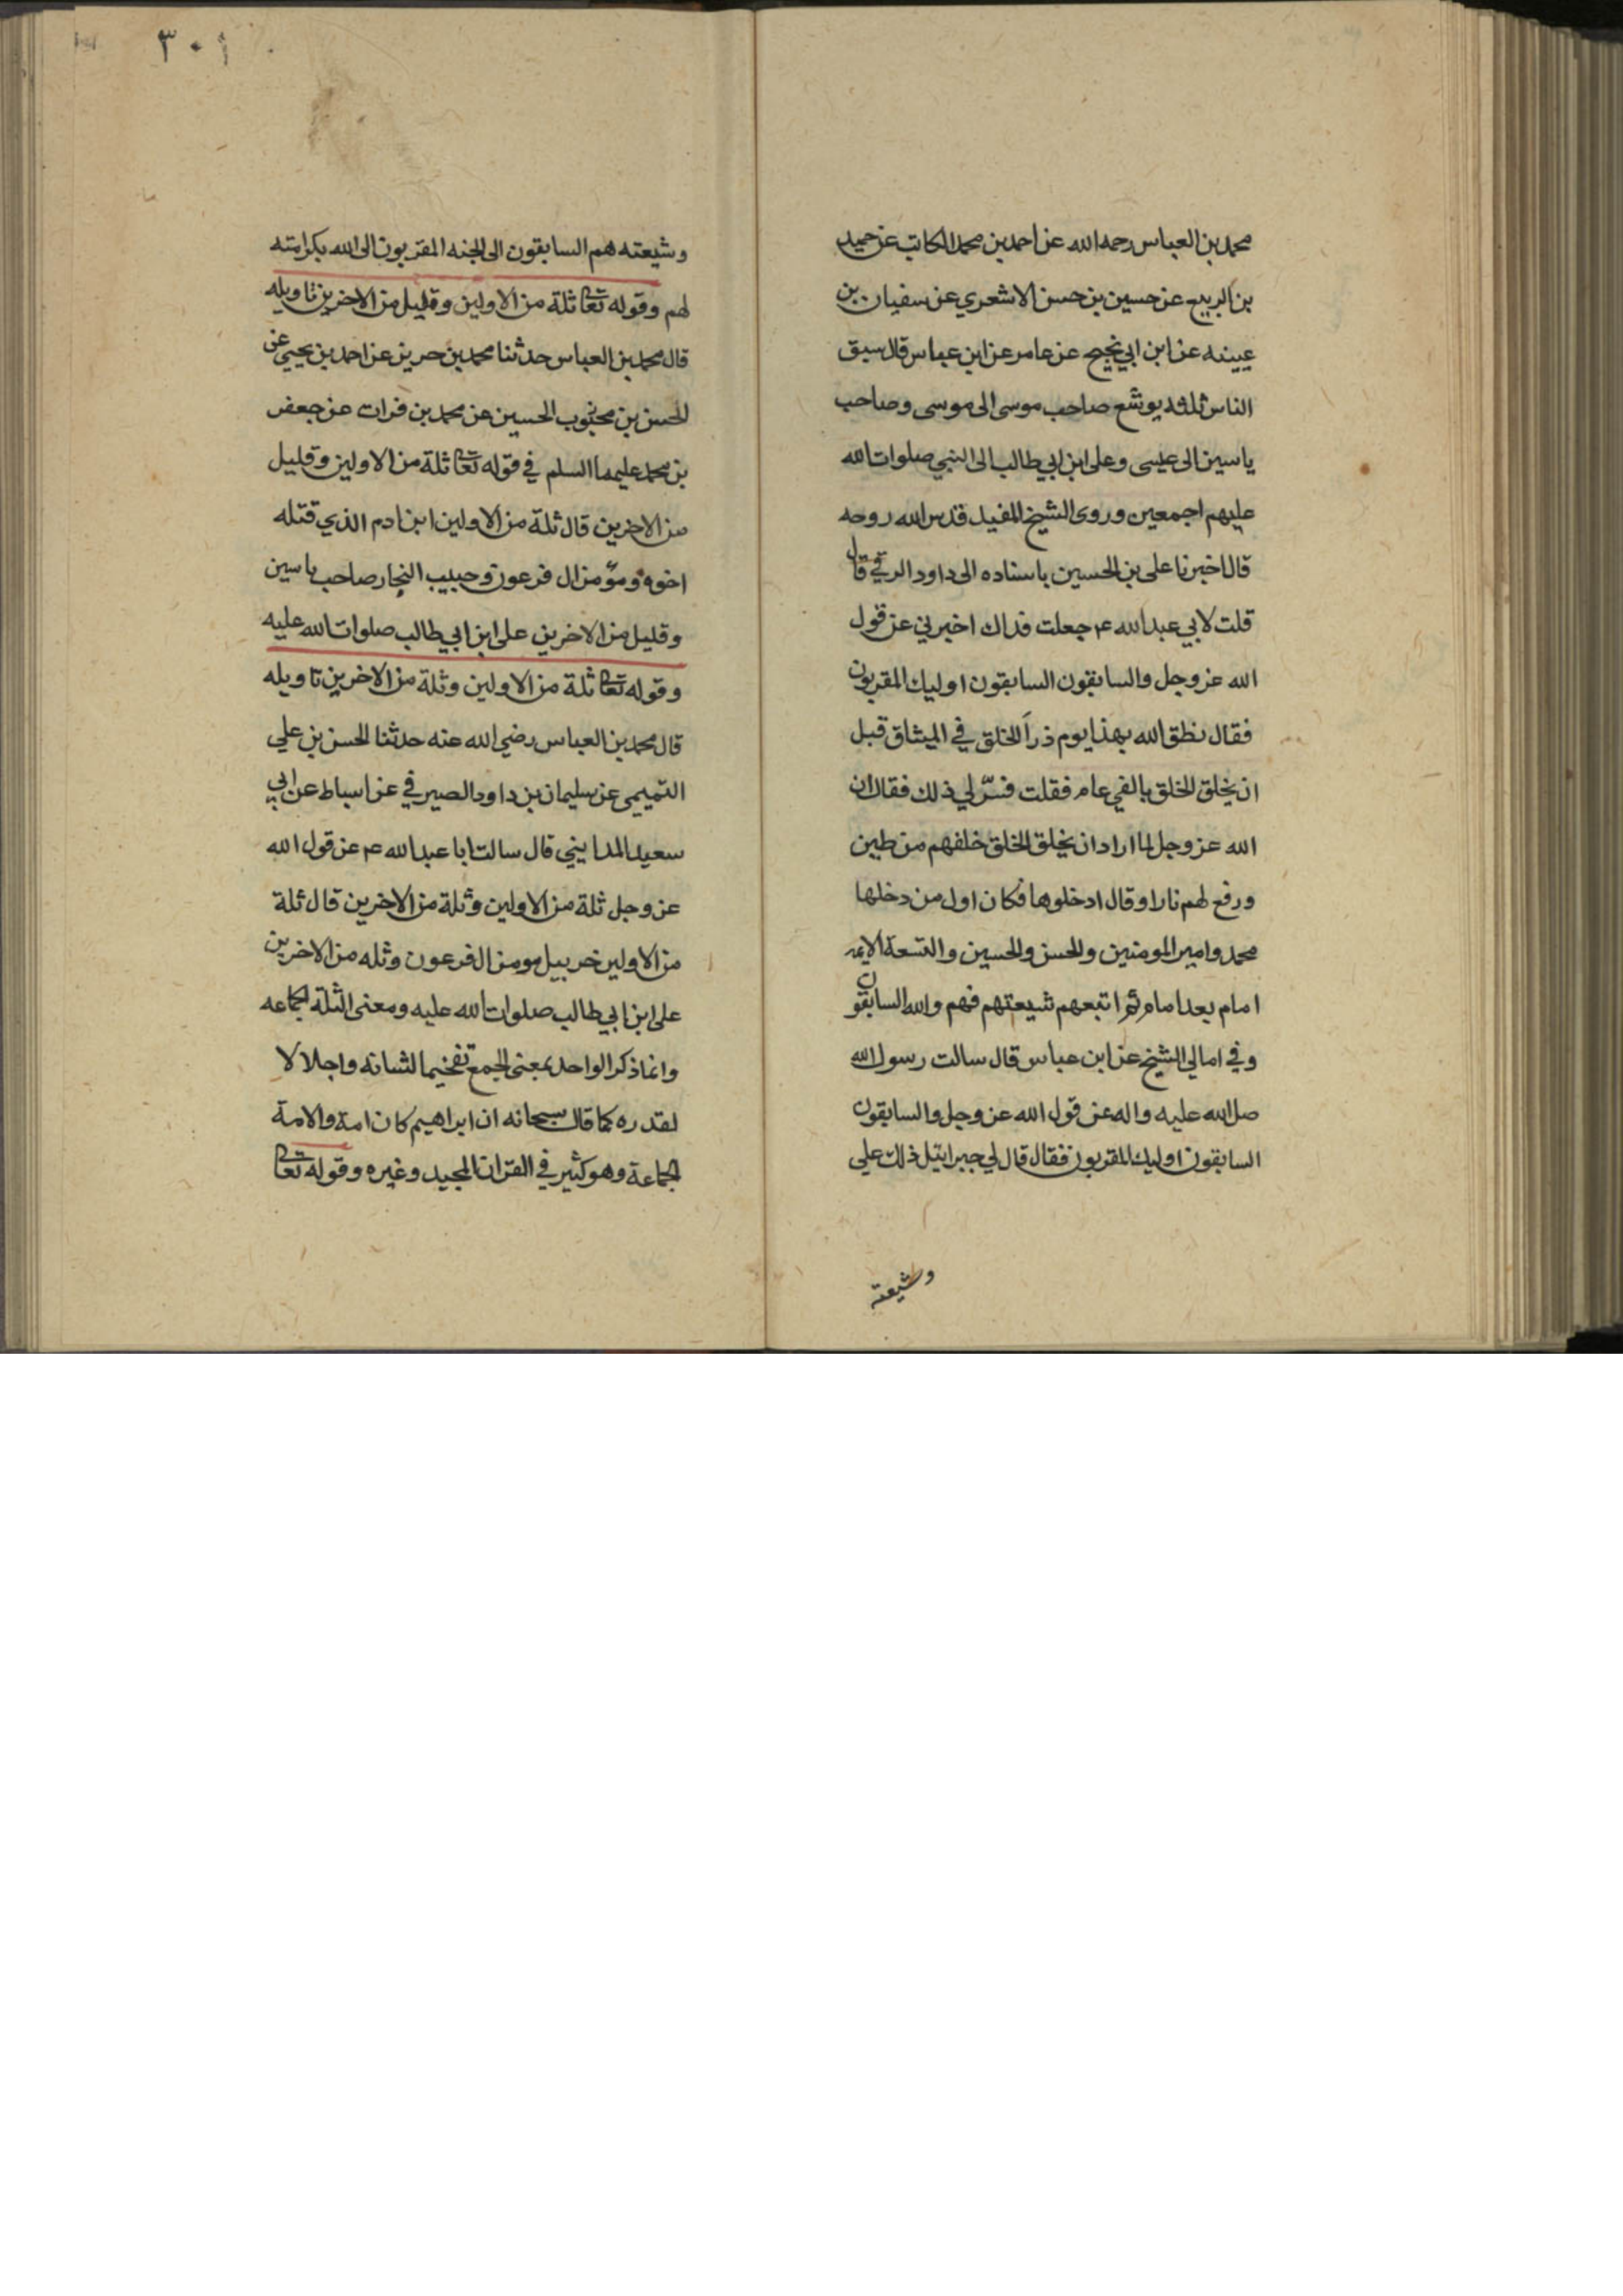 محمد بن العباس رحمه الله عن احمد بن محمد الكاتب عن حميد
بن الربيع عن حسين بن حسن الاشعري عن سفيان بن
عيينه عن ابن ابي نجيح عن عامر عن ابن عباس قال سبق
الناس ثلثه يوشع صاحب موسى الى موسى وصاحب
ياسين الى عيسى وعلى ابن ابي طالب الى النبي صلوات الله
عليهم اجمعين وروى الشيخ المفيد قدس الله روحه
قال اخبرنا على بن الحسين باسناده الى داود الرقي قال
قلت لابي عبد الله ع جعلت فداك اخبرني عن قول
الله عز وجل والسابقون السابقون اوليك المقربون
فقال نطق الله بهذا يوم ذرأ الخلق في الميثاق قبل
ان يخلق الخلق بالفي عام فقلت فسّر لي ذلك فقال ان
الله عز وجل لما اراد ان يخلق الخلق خلقهم من طين
ورفع لهم نارا وقال ادخلوها فكان اول من دخلها
محمد وامير المومنين والحسن والحسين والتسعة الايمه
امام بعد امام ثم اتبعهم شيعتهم فهم والله السابقون
وفي امالي الشيخ عن ابن عباس قال سالت رسول الله
صلى الله عليه واله عن قول الله عز وجل والسابقون
السابقون اوليك المقربون فقال قال لي جبرائيل ذلك على
وشيعته
٣٠١
وشيعته هم السابقون الى الجنه المقربون الى الله بكرامته
لهم وقوله تعا ثلة من الاولين وقليل من الاخرين تاويله
قال محمد بن العباس حدثنا محمد بن حريز عن احمد بن يحيى عن
الحسن بن محبوب الحسين عن محمد بن فرات عن جعفر
بن محمد عليهما السلم في قوله تعا ثلة من الاولين وقليل
من الاخرين قال ثلة من الاولين ابن ادم الذي قتله
اخوه ومؤمن ال فرعون وحبيب النجار صاحب ياسين
وقليل من الاخرين على ابن ابي طالب صلوات الله عليه
وقوله تعا ثلة من الاولين وثلة من الاخرين تاويله
قال محمد بن العباس رضي الله عنه حدثنا الحسن بن علي
التميمي عن سليمان بن داود الصيرفي عن اسباط عن ابي
سعيد المدايني قال سالت ابا عبد الله ع عن قول الله
عز وجل ثلة من الاولين وثلة من الاخرين قال ثلة
من الاولين خربيل مومن ال فرعون وثله من الاخرين
على ابن ابي طالب صلوات الله عليه ومعنى الثلة الجماعه
وانما ذكر الواحد بمعنى الجمع تفخيما لشانه واجلالا
لقدره كما قال سبحانه ان ابراهيم كان امة والامة
الجماعة وهو كثير في القران المجيد وغيره وقوله تعا